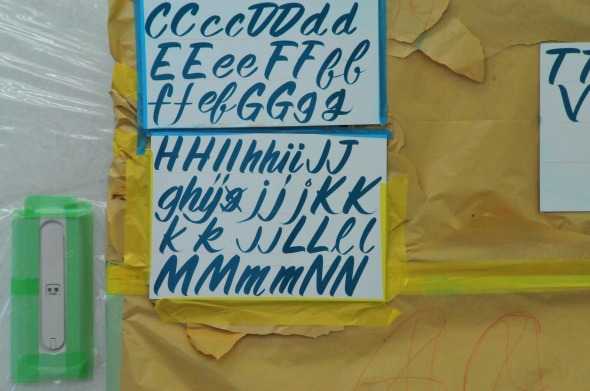 CCccDDdd
EEeeFFff
ffefGGgg
HHIIhhiiJJ
ghijsjjjKK
kkjjLLll
MMmmNN
TT
V